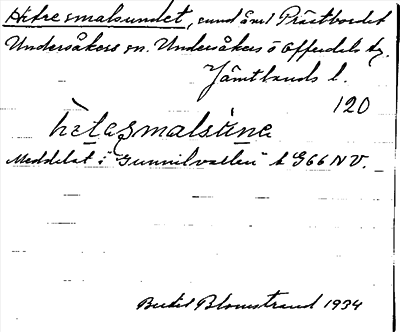 Hitresmalsundet, sund å nv Prästbordet
Undersåkers sn. Undersåkers o Offerdals tg.
Jämtlands l.
120
hìtesmalsúne
Meddelat i "Gunnilvallen" k G66 NV.
Bertil Blomstrand 1934